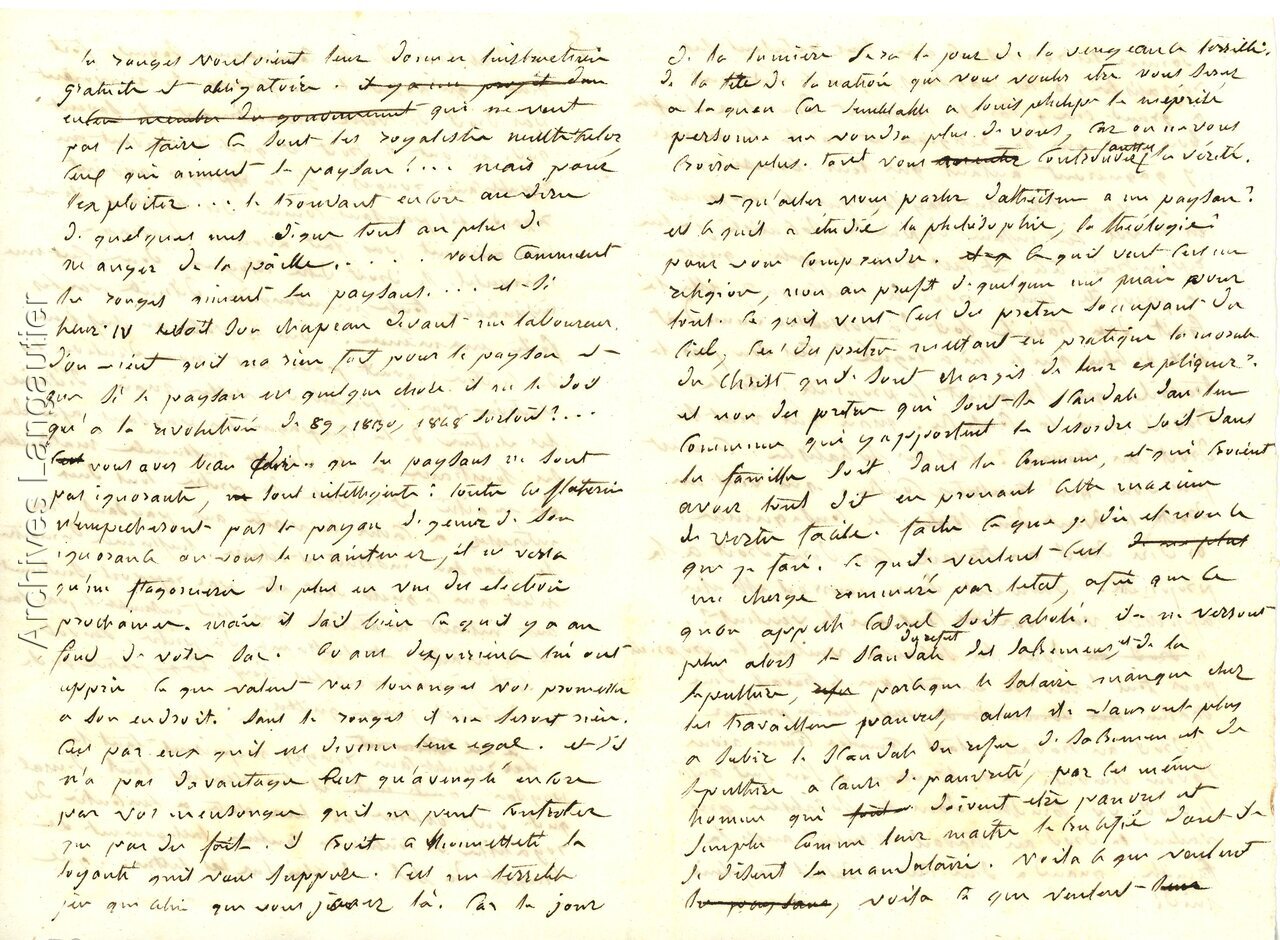 les rouges vouloient leur donner linstruction
gratuite et obligatoire. il y a un projet dun
membre du gouvernement qui ne veut
pas le faire ce sont les royalistes
ceux qui aiment le paysan!... mais pour
lexploiter... le trouvant encore au dire
de quelques uns digne tout au plus de
manger de la paille. . . . . voila comment
les rouges aiment les paysans.... et si
henri IV son chapeau devant un laboureur.
d'ou vient quil na rien fait pour le paysan et
que si le paysan est quelque chose il ne le doit
qu'a la révolution de 89, 1830, 1848 surtout?...
vous avez beau que les paysans ne sont
pas ignorants, sont intelligents: toutes ces flateries
n'empecheront pas le paysan de gemir de son
ignorance ou vous le maintenez, il ne verra
qu'une flagornerie de plus en vue des elections
prochaines. mais il sait bien ce quil y a au
fond de votre sac. 20 ans dexperience lui ont
appris ce que valent vos louanges vos promesses
a son endroit. sans les rouges il ne seroit rien.
Cest par eux quil est devenu leur egal. et s'il
n'a pas davantage cest qu'aveuglé encore
par vos mensonges quil ne peut controler
que par des faits. il croit a lhonnetteté la
loyauté quil vous suppose. Cest un terrible
jeu que celui que vous jouez là. Car le jour
de la lumière sera le jour de la vengeance terrible.
de la tete de la nation que vous voulez etre vous serez
a la queu car semblable a louis philipe le méprisé
personne ne voudra plus de vous, car on ne vous
croira plus. tant vous aurez la vérité.
et qu'allez vous parler dathéisme a un paysan?
est ce quil a étudié la philosophie, la théologie?
pour vous comprendre. ce quil veut cest une
religion, non au profit de quelques uns mais pour
tous. ce quil veut cest des pretres soccupant du
Ciel, cest des pretres mettant en pratique la morale
du Christ quils sont chargés de leur expliquer?.
et non des pretres qui sont le scandale dans leur
commune qui y apportent le desordre soit dans
les familles soit dans la commune, et qui croient
avoir tout dit en pronant cette maxime
de vertu facile. faites ce que je dis et non ce
que je fais. ce quils veulent cest
un clergé remuneré par letat, afin que ce
quon appelle casuel soit aboli. ils ne verront
plus alors le scandale du refus des sacremens, et de la
sepulture, parceque le salaire manque chez
les travailleurs pauvres, alors ils n'auront plus
a subir le scandale du refus de sacremens et de
sepulture a cause de pauvreté, par ces mêmes
hommes qui doivent etre pauvres et
simples comme leur maitre le crucifié dont ils
se disent les mandataires. Voila ce que veulent
les paysans, voila ce que veulent
Archives Langautier